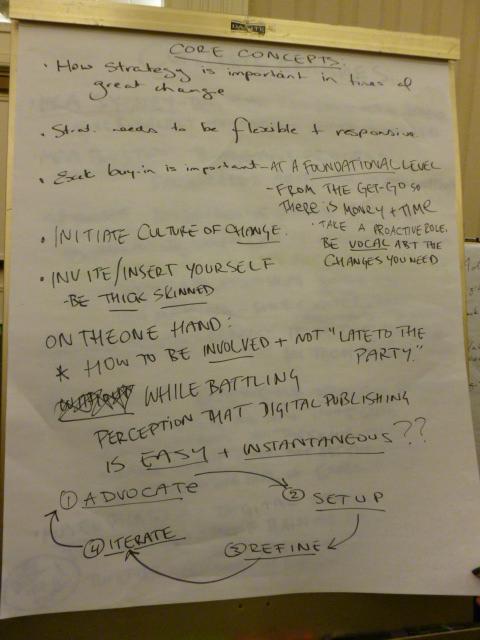 CORE CONCEPTS.
• How strategy is important in times of
great change
• Strat. needs to be flexible + responsive
• Seek buy-in is important - AT A FOUNDATIONAL LEVEL
- FROM THE GET-GO SO
THERE IS MONEY + TIME
• TAKE A PROACTIVE ROLE.
BE VOCAL ABT THE
CHANGES YOU NEED
• INITIATE CULTURE OF CHANGE.
• INVITE/INSERT YOURSELF
- BE THICK SKINNED
ON THE ONE HAND:
* HOW TO BE INVOLVED + NOT "LATE TO THE
PARTY."
WHILE BATTLING
PERCEPTION THAT DIGITAL PUBLISHING
IS EASY + INSTANTANEOUS??
① ADVOCATE
② SET UP
③ REFINE
④ ITERATE